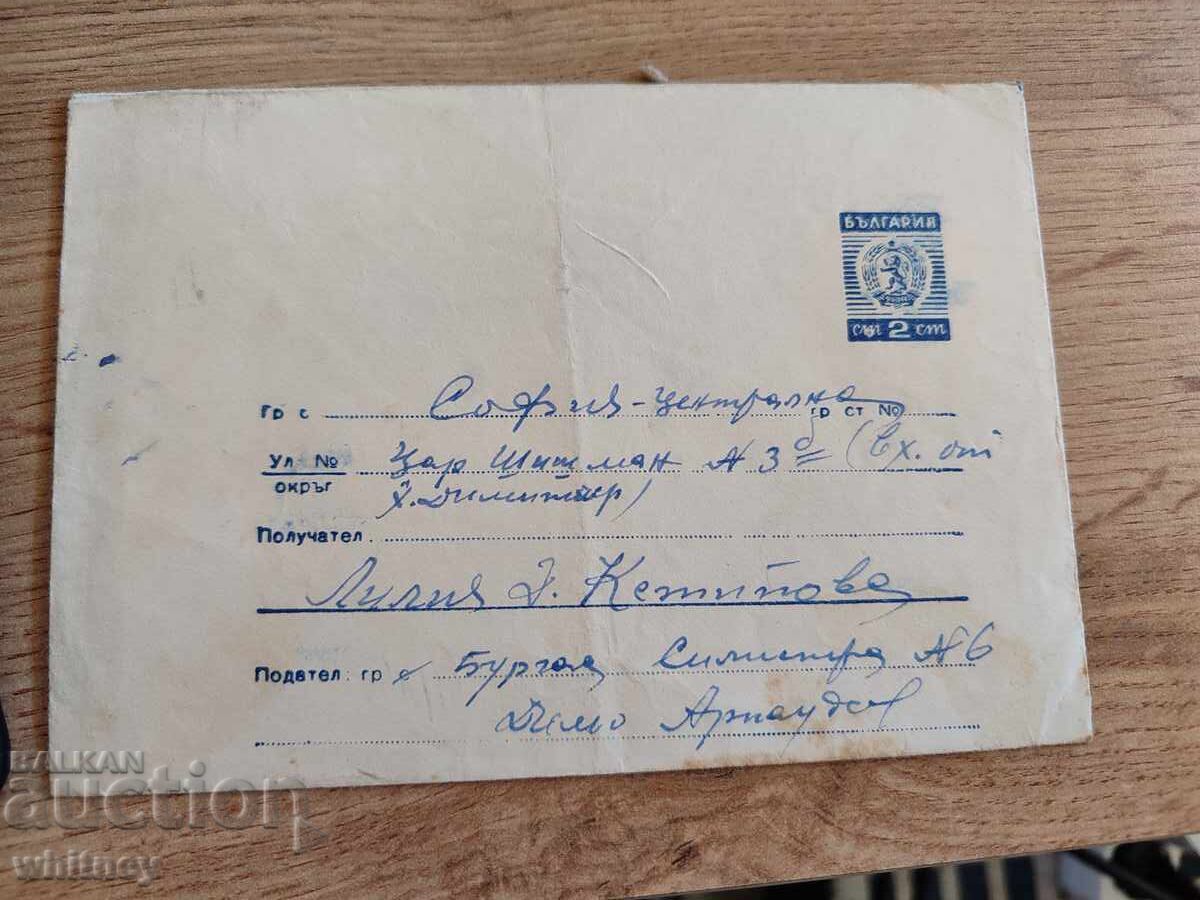 БЪЛГАРИЯ
ст 2 ст
Гр с София - централна гр ст №
Ул № Цар Шишман № 3 (вх. от
окръг Х. Димитър)
Получател
Лилия Д. Кетипова
Подател: гр Бургас Силистра № 6
Димо Арнаудов
BALKAN
auction
whitney